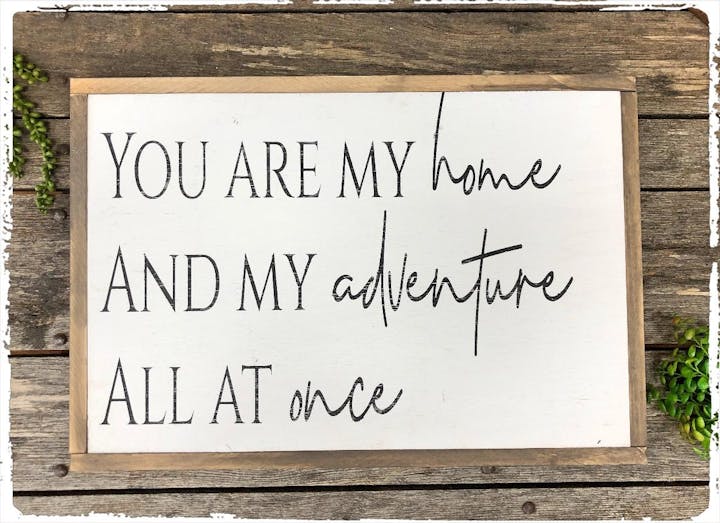 You are my home
And my adventure
All at once